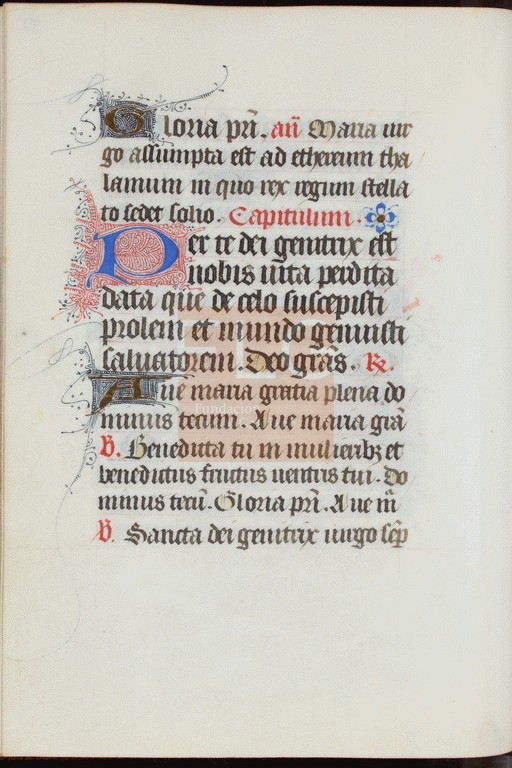 Gloria pri. an Maria uir
go assumpta est ad ethereum tha
lamum in quo rex regum stella
to sedet solio. Capitulum.
Per te dei genitrix est
nobis uita perdita
data que de celo suscepisti
prolem et mundo genuisti
saluatorem. Deo gras. R.
Aue maria gratia plena do
minus tecum. Aue maria gra
V. Benedicta tu in mulieribz et
benedictus fructus uentris tui. Do
minus tecu. Gloria pri. Aue m
V. Sancta dei genitrix uirgo sep
Fundación